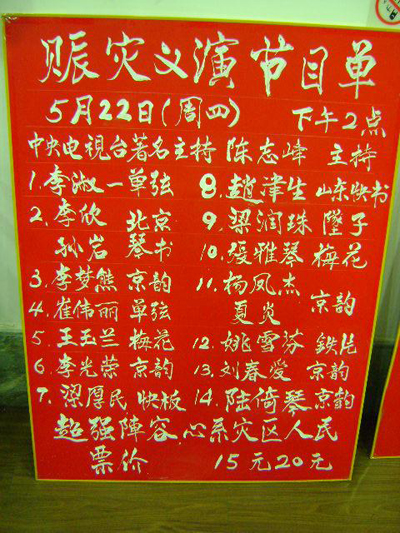 赈灾义演节目单
5月22日(周四) 下午2点
中央电视台著名主持 陈志峰 主持
1. 李淑一 单弦
2. 李欣 北京
孙岩 琴书
3. 李梦熊 京韵
4. 崔伟丽 单弦
5. 王玉兰 梅花
6. 李光荣 京韵
7. 梁厚民 快板
8. 趙津生 山东快书
9. 梁润珠 墜子
10. 張雅琴 梅花
11. 杨凤杰 京韵
夏炎
12. 姚雪芬 鉄片
13. 刘春爱 京韵
14. 陆倚琴 京韵
超强陣容心系灾区人民
票价 15元20元